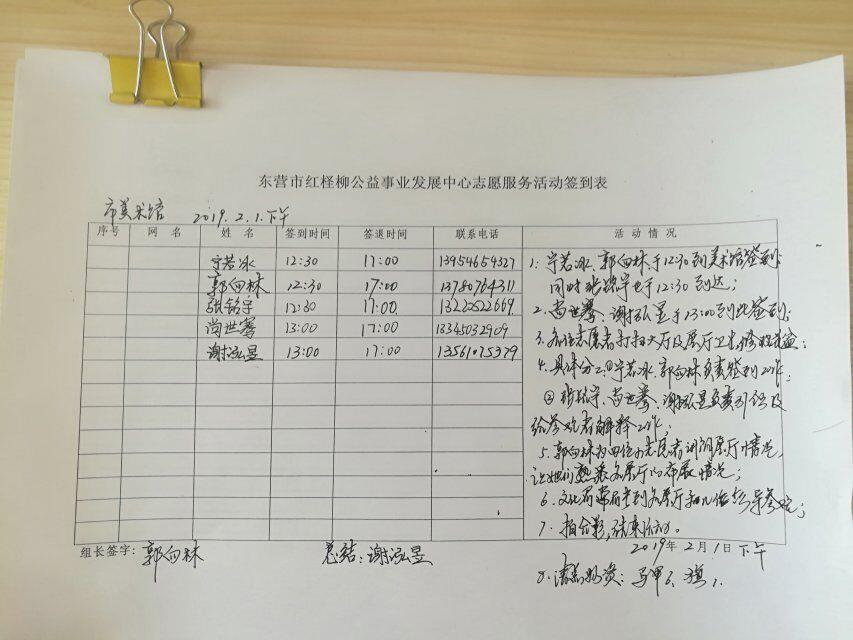 东营市红柽柳公益事业发展中心志愿服务活动签到表
市美术馆 2019.2.1.下午
序号 网名 姓名 签到时间 签退时间 联系电话 活动情况
宁若冰 12:30 17:00 13954654327
郭向林 12:30 17:00 13780764311
张铭宇 12:30 17:00 13220522669
尚世骞 13:00 17:00 13345032909
谢泓昱 13:00 17:00 13561075379
1. 宁若冰、郭向林于12:30到美术馆签到;
同时张铭宇也于12:30到达;
2. 尚世骞、谢泓昱于13:00到此签到;
3. 各位志愿者打扫大厅及展厅卫生
4. 具体分工:①宁若冰、郭向林负责签到工作;
② 张铭宇、尚世骞、谢泓昱负责引领及
给参观者解释工作;
5. 郭向林为四位志愿者讲解展厅情况,
让她们熟悉各展厅的布展情况;
6. 文化局带领到各展厅
7. 拍合影,结束活动。
组长签字: 郭向林 总结:谢泓昱 2019年2月1日下午
8. 清点物资:马甲6、旗1.